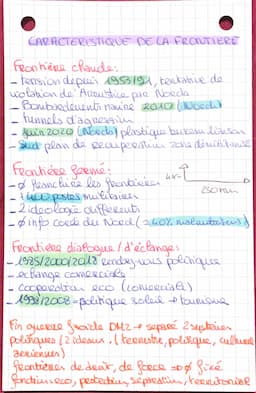 CARACTERISTIQUE DE LA FRONTIERE
Frontière chaude:
- tension depuis 1953/91, tentative de
violation de l'Armistice par Nordco
- Bombardements marine 2010 (Nordco)
- tunnels d'agression
- juin 2020 (Nordco) plastique bureau liaison
- Sud plan de récupération zone démilitarisé
Frontière fermé:
- Ø franchire les frontières
- postes militaire
- 2 ideologie differents
4km
250km
- Ø info corée du Nord (
Frontière dialogue / d'échange:
- 1985/2000/2018 rendez-vous politique
- echange comerciale
- cooperation eco (comerciale)
- 1998/2008 - politique soleil → tourisme
Fin guerre froide DMZ → séparé 2 systèmes
politiques (2 ideaux). (terrestre, politique, culture
aeriennes)
frontières de droit, de force → Ø fixé
fonction eco, protection, séparation, territoriale